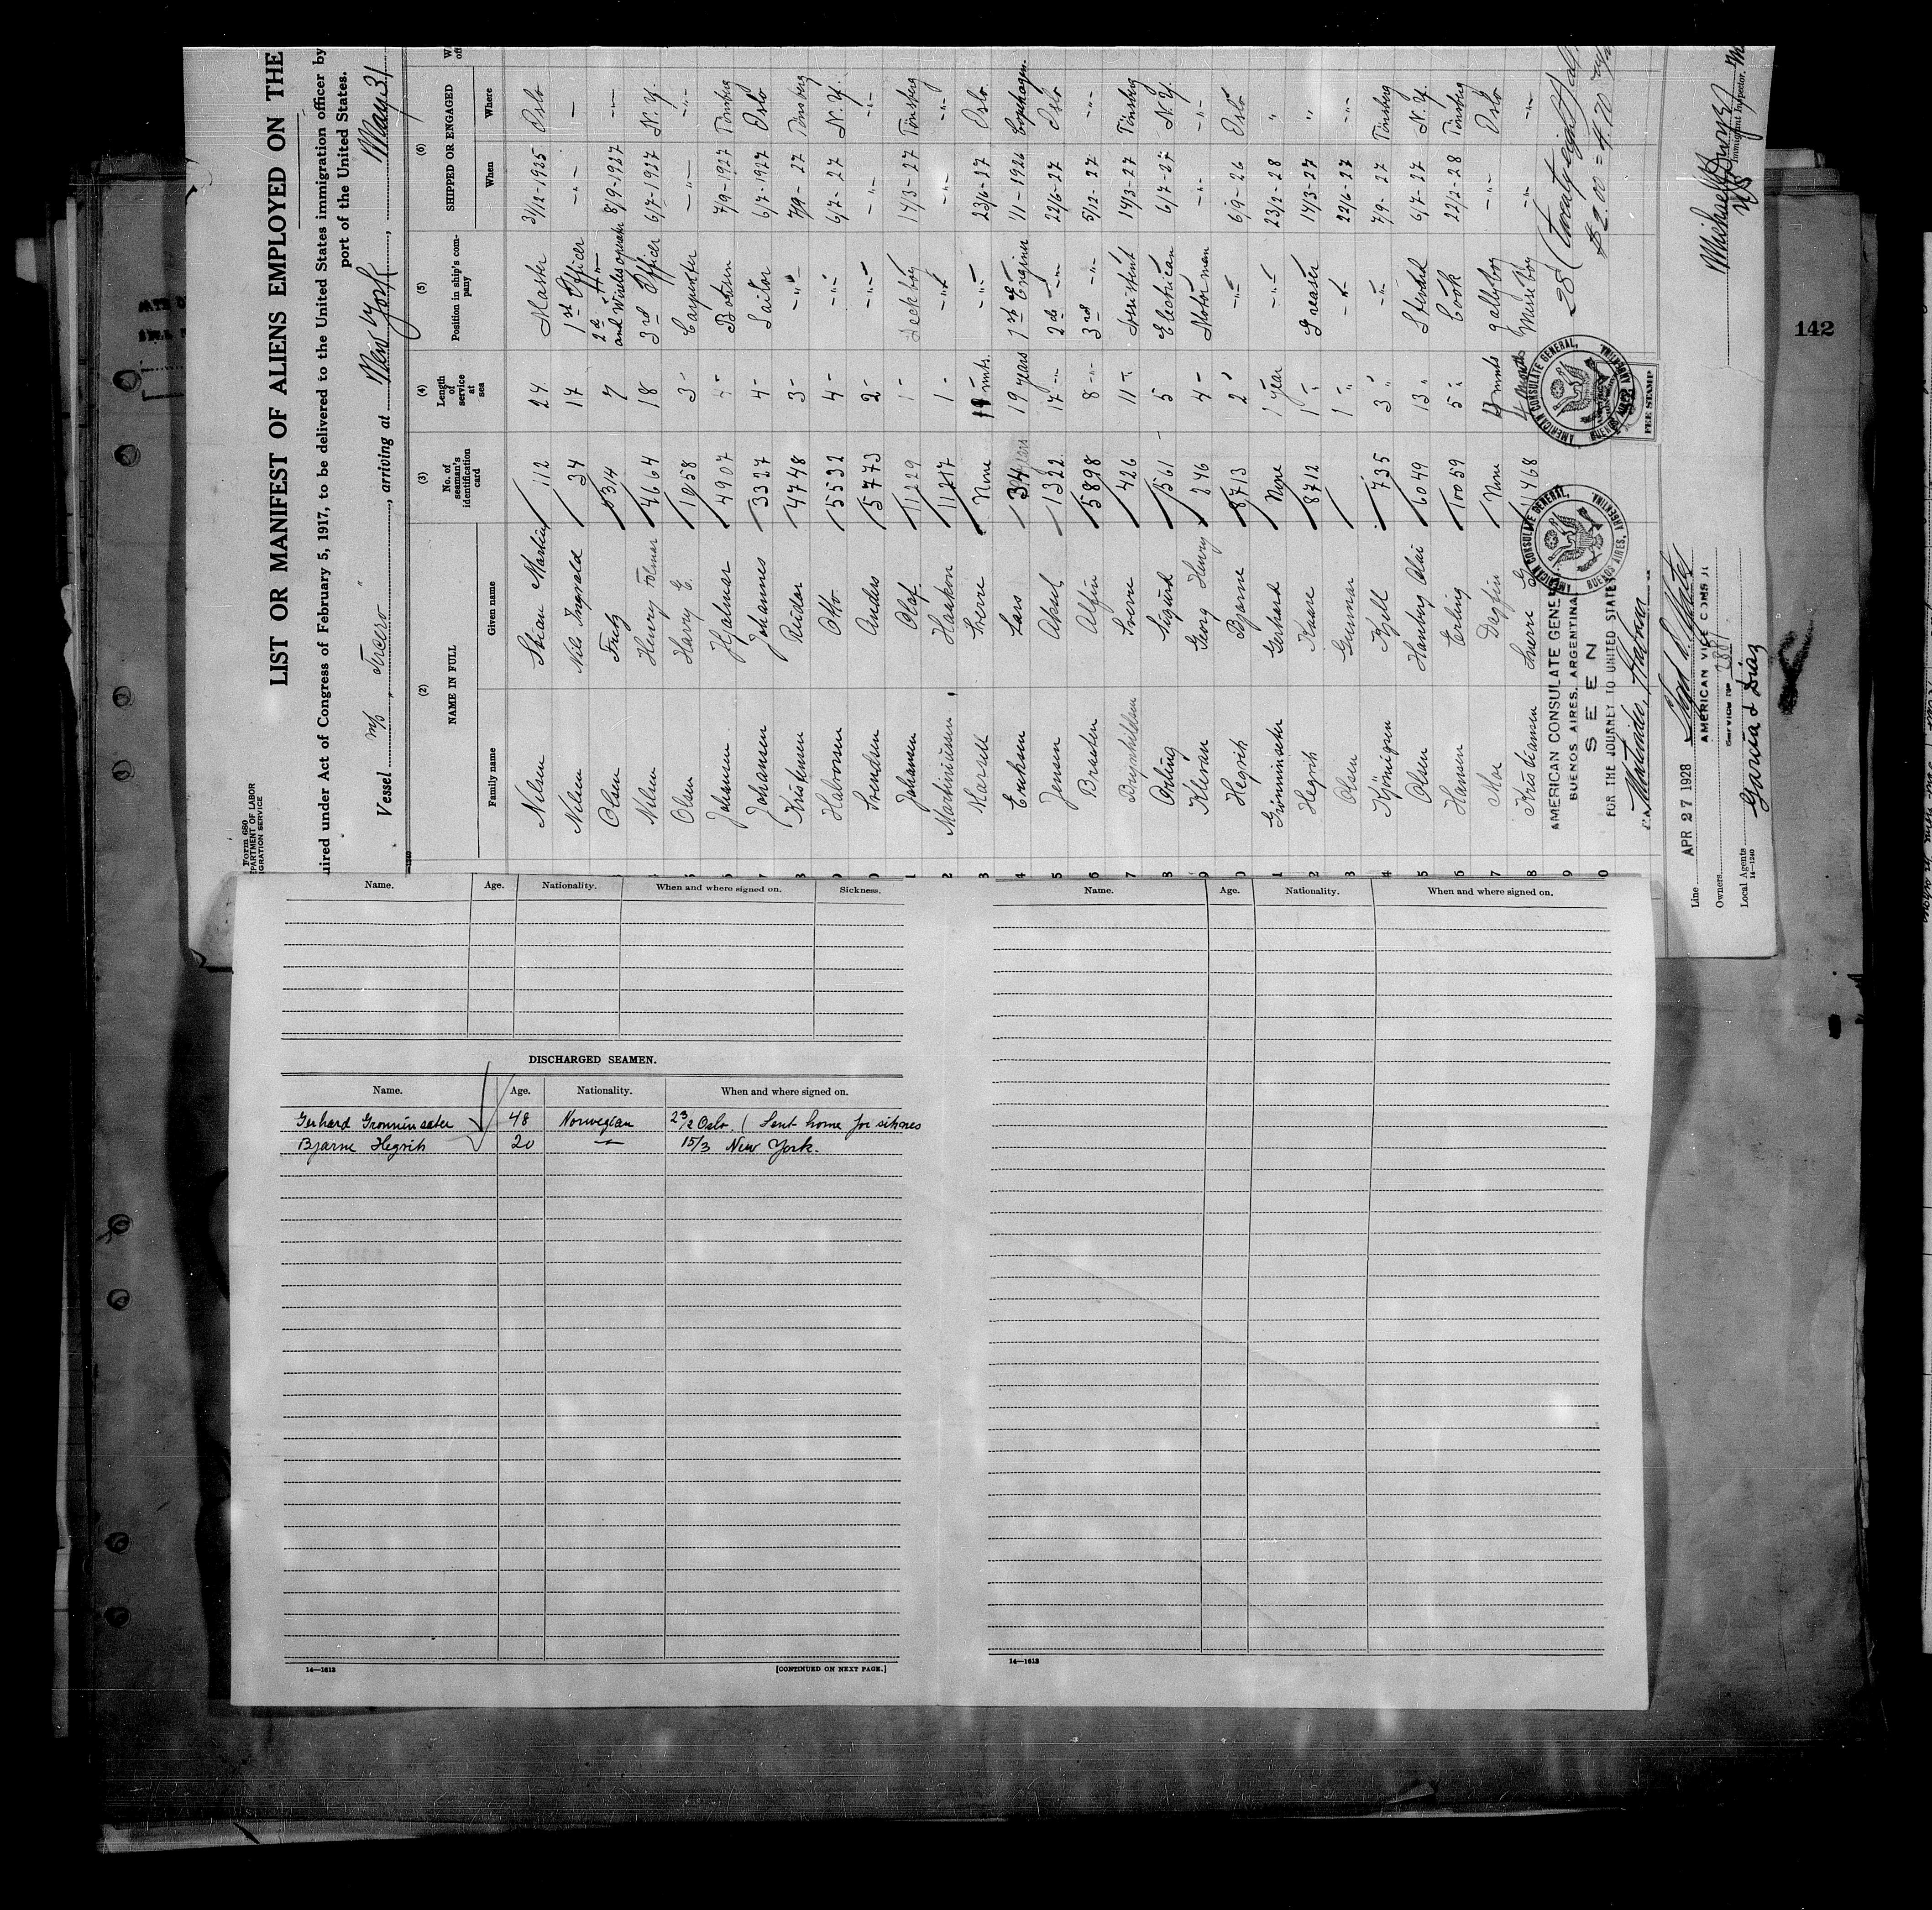 LIST OR MANIFEST OF ALIENS EMPLOYED ON THE
uired under Act of Congress of February 5, 1917, to be delivered to the United States immigration officer by
port of the United States.
Form 680
PARTMENT OF LABOR
IGRATION SERVICE
Vessel m/s " Tercero ", arriving at New York, May 31
(2) (3) (4) (5) (6)
NAME IN FULL No. of seaman's identification card Length of service at sea Position in ship's company SHIPPED OR ENGAGED
Family name Given name When Where
Nilsen Stian Martin 112 24 Master 31/12-1925 Oslo
Nilsen Nils Ingvald 34 17 1st Officer -"- -"-
Olsen Fritz 5314 7 2d -"- and Wireles operator 8/9-1927 -"-
Nilsen Henry Folmar 4664 18 3rd Officer 6/7-1927 N.Y.
Olsen Harry E. 1958 3 - Carpenter -"- -"-
Johansen Hjalmar 4907 Botsun 7/9-1927 Tönsberg
Johansen Johannes 3327 4 - Sailor 6/7-1927 Oslo
Kristensen Reidar 4748 3 - -"- 7/9-27 Tönsberg
Halvorsen Otto 5532 4 - -"- 6/7-27 N.Y.
Svendsen Anders 5773 2 - -"- -"- -"-
Johansen Olaf 11229 1 - Deckboy 14/3-27 Tönsberg
Martiniussen Haakon 11217 1 - -"- -"- -"-
Sverre None mnts. -"- 23/6-27 Oslo
Eriksen Lars 34 19 years 1rst Enginer 1/1-1926 Copnhagen.
Jensen Aksel 1322 17 -"- 2nd -"- 22/6-27 Oslo
Braaten 5898 8 -"- 3rd -"- 5/12-27 -"-
Brynhildsen Sverre 426 11 -"- Assistent 14/3-27 Tönsberg
Sigurd 561 5 Electrican 6/7-27 N.Y.
Georg Henry 246 4 - Motorman -"- -"-
Hegvik Bjarne 8713 2 " -"- 6/9-26 Oslo
Grönninseter Gerhard None 1 year -"- 23/2-28 "
Hegvik Kaare 8712 1 " Greaser 14/3-27 "
Olsen Gunnar 1 " -"- 22/6-27 -"-
Kjell 735 3 " -"- 7/9-27 Tönsberg
Olsen Hartvig Olai 6049 13 " Steward 6/7-27 N.Y.
Hansen Erling 10059 5 " Cook 22/2-28 Tönsberg
Moe Dagfin None mnts gallyboy -"- Oslo
Kristiansen Sverre G 11468 4 months Messeboy -"- -"-
28 (twenty eight)
$2.00 =
AMERICAN CONSULATE GENE
BUENOS AIRES, ARGENTINA
SEEN
FOR THE JOURNEY TO UNITED STATES
AMERICAN CONSULATE GENERAL,
BUENOS AIRES, ARGENTINA.
AMERICAN CONSULATE GENERAL,
FEE STAMP
APR 27 1928
AMERICAN VICE CONSUL
Service No 2801
Line
Owners
Local Agents Garcia & Diaz
14—1240
Immigrant Inspector.
142
Name. Age. Nationality. When and where signed on. Sickness.
DISCHARGED SEAMEN.
Name. Age. Nationality. When and where signed on.
Gerhard Gronninsater 48 Norwegian 23/2 Oslo. ( Sent home for siknes
Bjarne Hegvik 20 -"- 15/3 New York.
14—1613 [CONTINUED ON NEXT PAGE.]
Name. Age. Nationality. When and where signed on.
14—1613